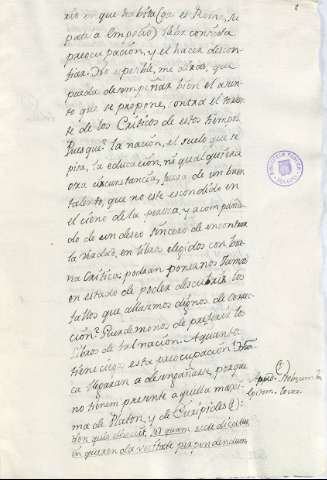 rio en que habita (qe es Roma,
patria
preocupacion, y el hacer descon-
fiar. No es posible, me dirás, que
pueda desempeñar bien el asun-
to que se propone, contra el torren-
te de los Criticos de estos tiempos.
Pues que? la nacion, el suelo que se
pisa, la educacion, ni qualquiera
otra circunstancia, fuera de un buen
talento, que no este escondido en
el cieno de la pereza, y acompaña-
do de un deseo sincero de encontrar
la verdad, en libros elegidos con bue-
na Critica podran ponernos
en estado de poder descubrir los
fallos que allarmos dignos de correc-
cion? Guardemonos de preferir los
libros de tal nacion. A quanto
tiene ciega esta preocupacion!
ca llegaran a desengañarse, porque
no tienen presente aquella maxi-
ma de Platon, y de Euripides ( ):
Non quis dixerit, sed quam recte dicatur
in quærenda veritate perpendendum